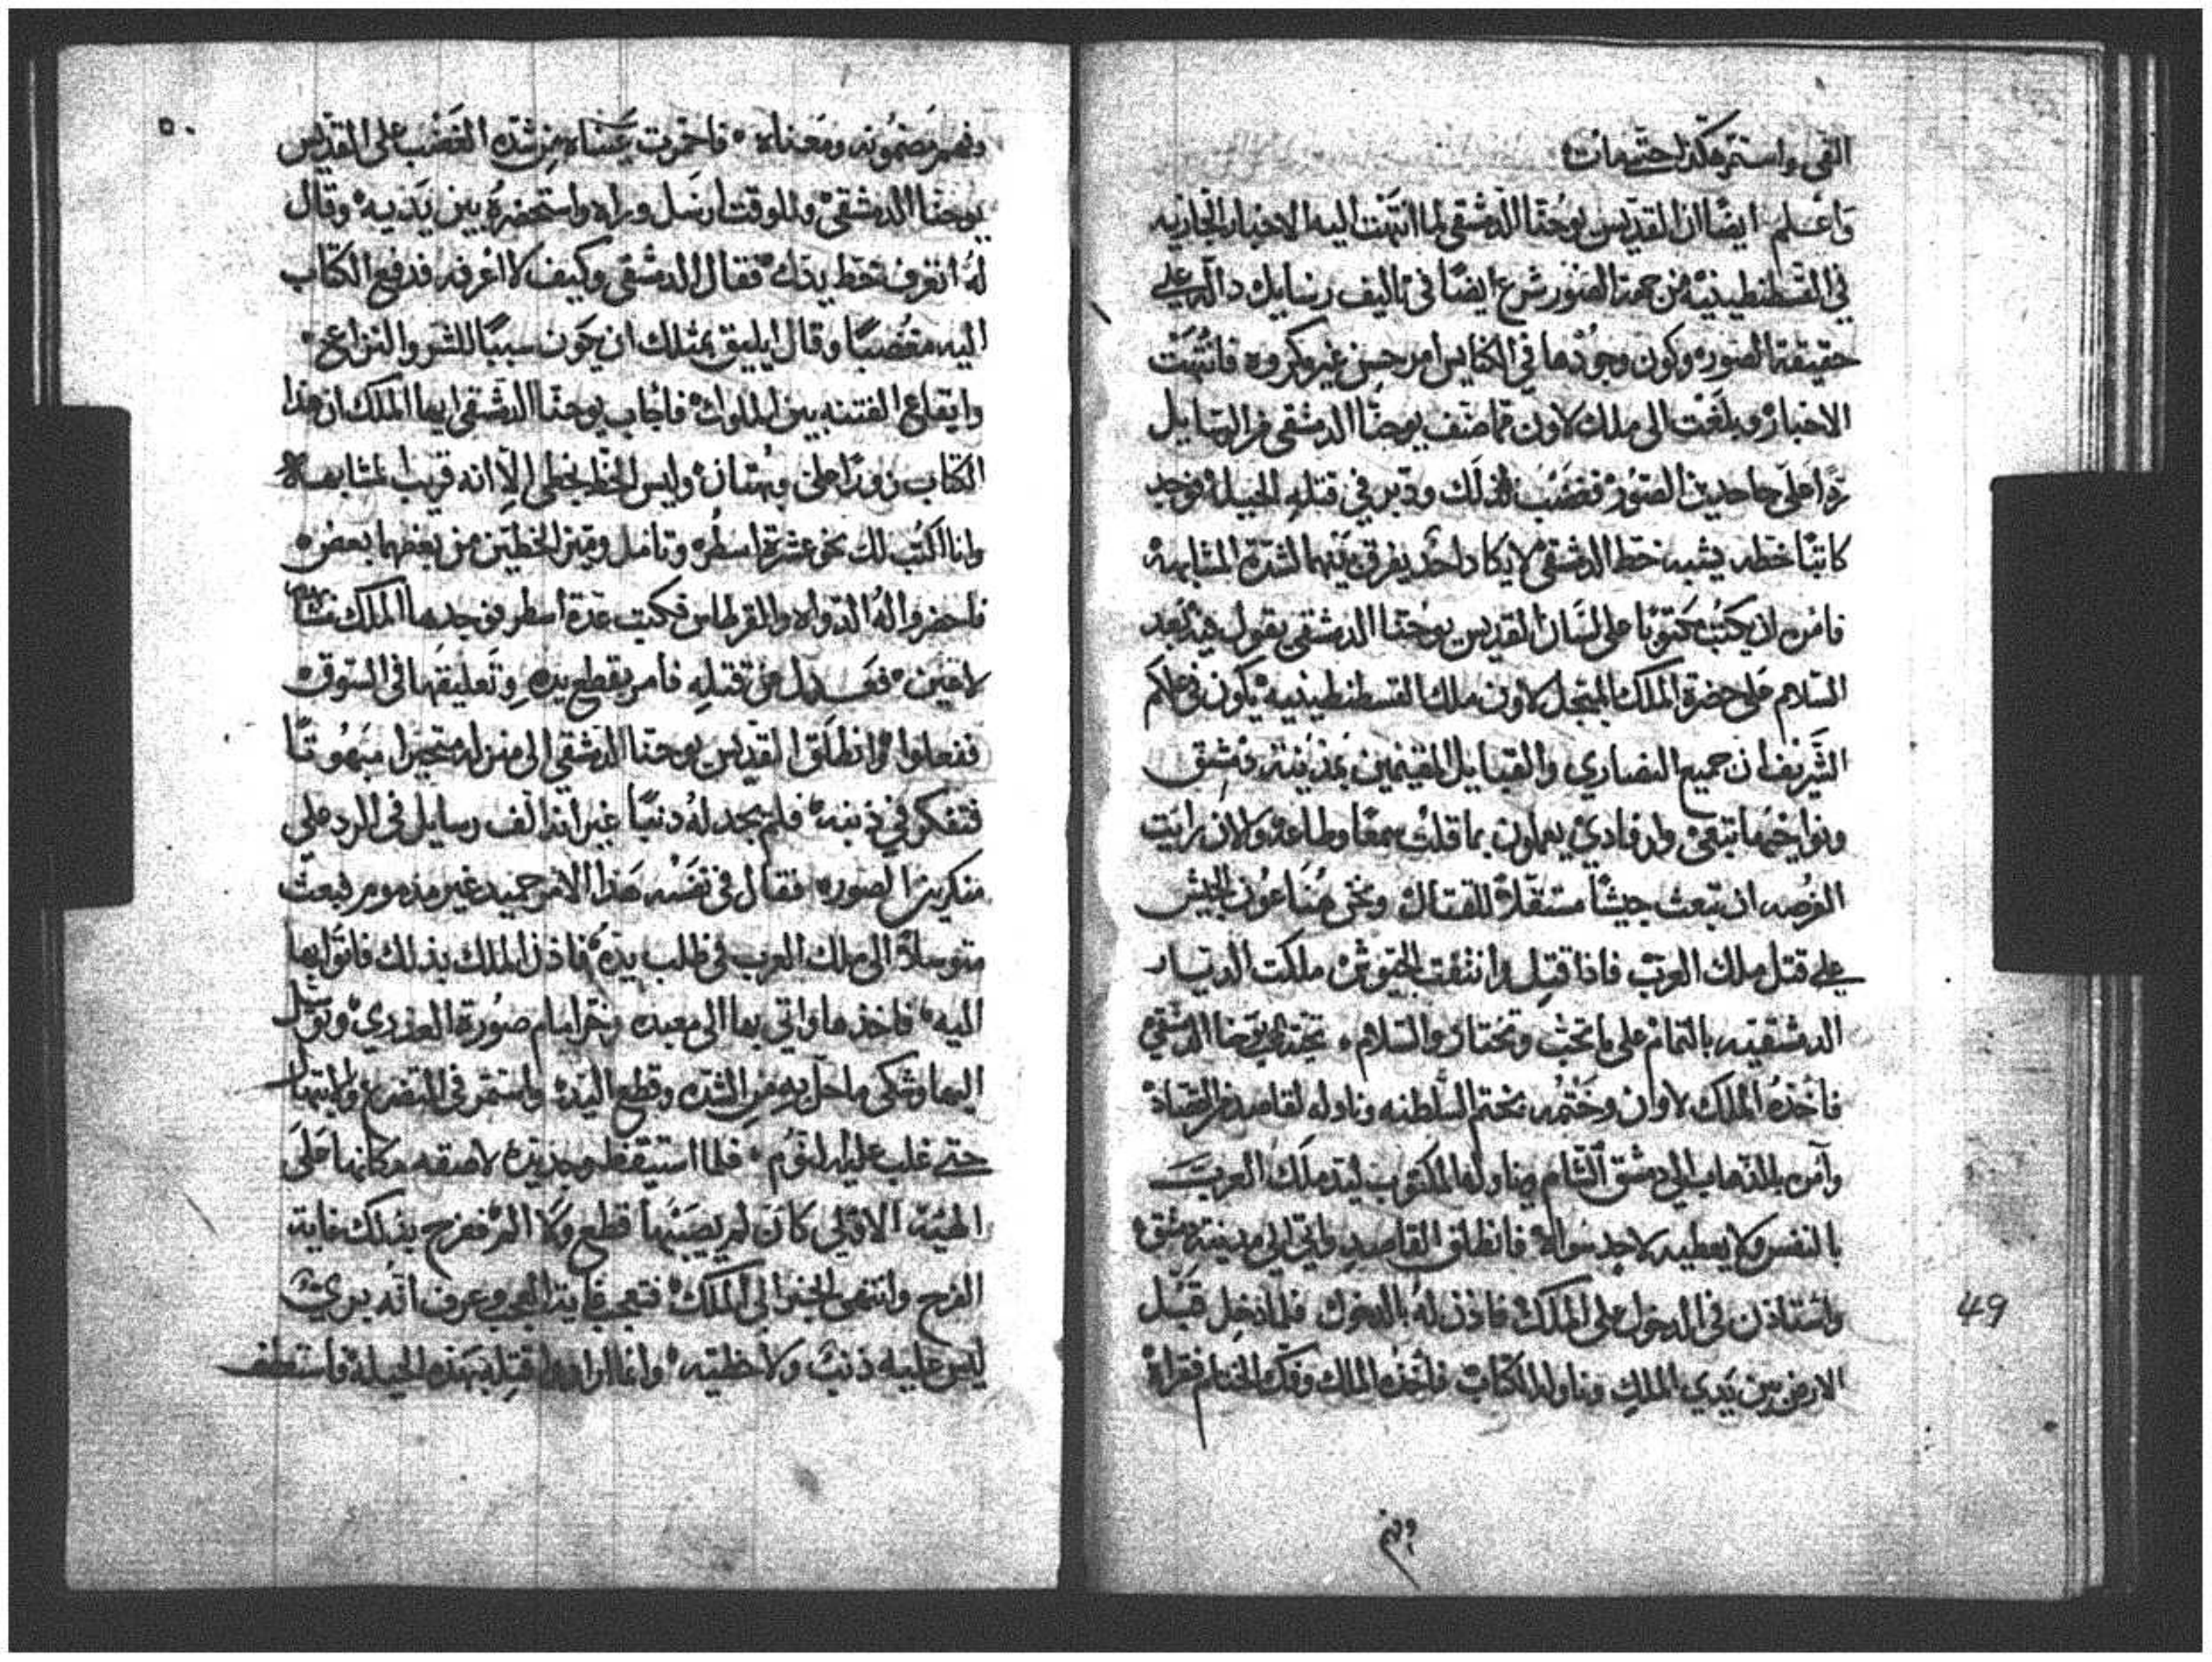 النفي واستمر هكذا حتي مات
واعلم ايضًا ان القديس يوحنا الدمشقي لما انتهت اليه الاخبار الجاريه
في القسطنطينيه من جهة الصور شرع ايضًا في تاليف رسايل دالة علي
حقيقة الصور وكون وجودها في الكنايس امر حسن غير مكروه فانتهت
الاخبار وبلغت الى ملك لاون مما صنف يوحنا الدمشقي من الرسايل
ردًا على جاحدين الصور فغضب لذلك ودبر في قتله الحيله فوجد
كاتبًا خطه يشبه خط الدمشقي لا يكاد احد يفرق بينهما لشدة المشابهة
فامره ان يكتب مكتوبًا على لسان القديس يوحنا الدمشقي يقول فيه بعد
السلام على حضرة الملك المبجل لاون ملك القسطنطينيه يكون في علمكم
الشريف ان جميع النصاري والقبايل المقيمين بمدينة دمشق
ونواحيها تبعي وانقادي يعملون بما قلت سمعًا وطاعة ولان رايت
الفرصه ان تبعث جيشًا مستقلاً للقتال ونحن مساعون الجيش
علي قتل ملك العرب فاذا قتل وانتفت الجيوش ملكت الديار
الدمشقيه بالتمام على ما تحب وتختار والسلام يوحنا الدمشقي
فاخذه الملك لاوان وختمه بختم السلطنه وناوله لقاصد من القصاد
وآمره بالذهاب الى دمشق الشام ويناول المكتوب ليد ملك العرب
بالنفس ولا يعطيه لاحد سواه فانطلق القاصد واتى الى مدينة دمشق
واستاذن في الدخول على الملك فاذن له بالدخول فلما دخل قبل
الارض بين يدي الملك وناوله الكتاب فاخذه الملك وفك الختام فقراه
وفهم
49
٥٠
وفهم مضمونه ومعناه فاحمرت عيناه من شدة الغضب على القديس
يوحنا الدمشقي وللوقت ارسل وراه واستحضره بين يديه وقال
له اتعرف خط يدك فقال الدمشقي وكيف لا اعرفه فدفع الكتاب
اليه مغضبًا وقال ايليق بمثلك ان يكون سببًا للشر والنزاع
وايقاع الفتنه بين الملوك فاجاب يوحنا الدمشقي ايها الملك ان هذا
الكتاب زورًا على وبهتان وليس الخط بخطى الا انه قريب لمشابهه
وانا اكتب لك نحو عشرة اسطر وتامل وميز الخطين من بعضهما بعض
فاحضروا له الدواه والقرطاس فكتب عدة اسطر فوجدها الملك متشابه
لاعنين فعدل عن قتله فامر بقطع يده وتعليقها في السوق
ففعلوا وانطلق القديس يوحنا الدمشقي الى منزله متحيرا مبهوتًا
فتفكر في ذنبه فلم يجد له ذنبًا غير انه الف رسايل في الرد على
منكرين الصور فقال في نفسه هذا الامر حميد غير مذموم فبعث
متوسلاً الى ملك العرب في طلب يده فاذن الملك بذلك فاتوا بها
اليه فاخذها واتى بها الى معبده وخر امام صورة العذري وتوسل
اليها وشكى ما حل به من الشده وقطع اليد واستمر في التضرع والابتهال
حتي غلب عليه النوم فلما استيقظ وجد يده لاصقه مكانها على
الهيئة الاولي كان لم يصيبها قطع ولا الم ففرح بذلك غاية
الفرح وانتهى الخبر الى الملك فتعجب غاية العجب وعرف انه بري
ليس عليه ذنب ولا خطيه وانما ارادوا قتله بهذه الحيلة فاستعطف